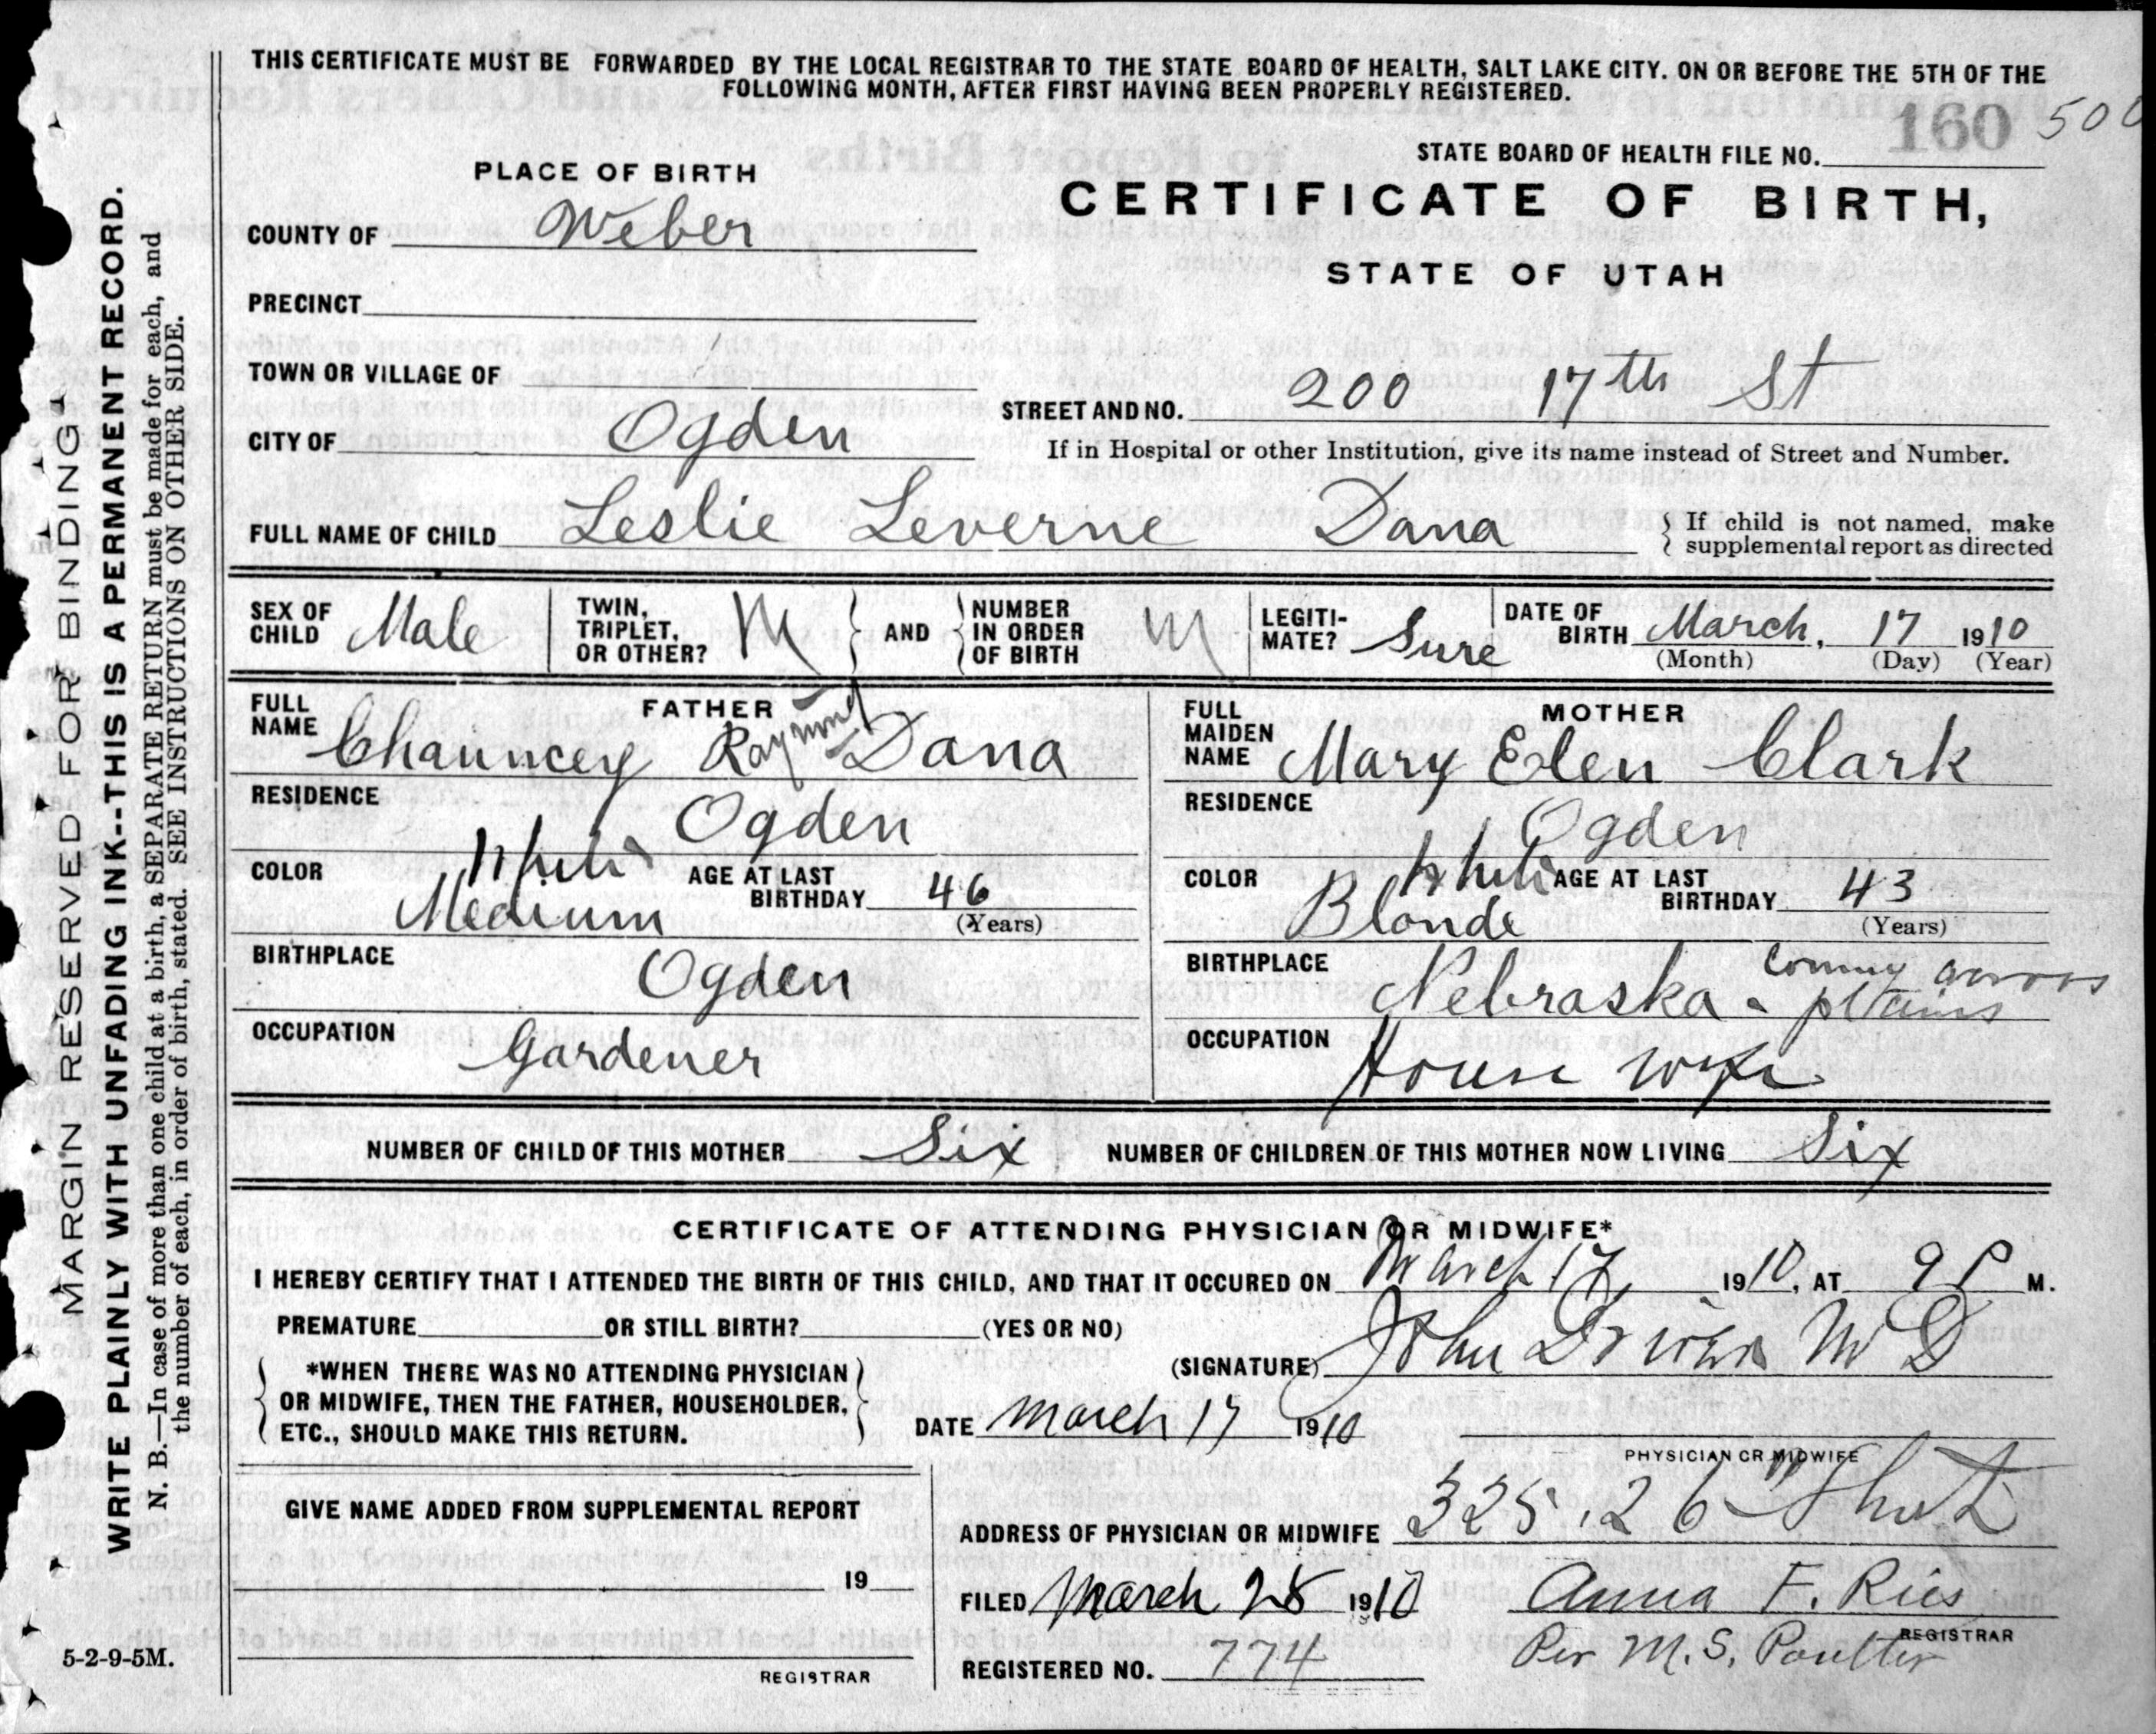 THIS CERTIFICATE MUST BE FORWARDED BY THE LOCAL REGISTRAR TO THE STATE BOARD OF HEALTH, SALT LAKE CITY. ON OR BEFORE THE 5TH OF THE
FOLLOWING MONTH, AFTER FIRST HAVING BEEN PROPERLY REGISTERED.
160 500
STATE BOARD OF HEALTH FILE NO.
PLACE OF BIRTH
CERTIFICATE OF BIRTH,
STATE OF UTAH
COUNTY OF Weber
PRECINCT
TOWN OR VILLAGE OF
STREET AND NO. 200 17th St
CITY OF Ogden
If in Hospital or other Institution, give its name instead of Street and Number.
FULL NAME OF CHILD Leslie Leverne Dana
If child is not named, make
supplemental report as directed
SEX OF CHILD Male
TWIN, TRIPLET, OR OTHER?
AND
NUMBER IN ORDER OF BIRTH
LEGITI-MATE? Sure
DATE OF BIRTH March, 17 1910
(Month) (Day) (Year)
FATHER
FULL NAME Chauncey Raymond Dana
RESIDENCE Ogden
COLOR White Medium
AGE AT LAST BIRTHDAY 46
(Years)
BIRTHPLACE Ogden
OCCUPATION Gardener
MOTHER
FULL MAIDEN NAME Mary Elen Clark
RESIDENCE Ogden
COLOR White Blonde
AGE AT LAST BIRTHDAY 43
(Years)
BIRTHPLACE Nebraska - coming across plains
OCCUPATION House wife
NUMBER OF CHILD OF THIS MOTHER Six
NUMBER OF CHILDREN OF THIS MOTHER NOW LIVING Six
CERTIFICATE OF ATTENDING PHYSICIAN OR MIDWIFE*
I HEREBY CERTIFY THAT I ATTENDED THE BIRTH OF THIS CHILD, AND THAT IT OCCURED ON March 17, 1910, AT 9 P M.
PREMATURE OR STILL BIRTH? (YES OR NO)
*WHEN THERE WAS NO ATTENDING PHYSICIAN
OR MIDWIFE, THEN THE FATHER, HOUSEHOLDER,
ETC., SHOULD MAKE THIS RETURN.
(SIGNATURE) John Driver M D
DATE March 17 1910
PHYSICIAN OR MIDWIFE
GIVE NAME ADDED FROM SUPPLEMENTAL REPORT
19
REGISTRAR
ADDRESS OF PHYSICIAN OR MIDWIFE 325, 26
FILED March 28 1910
Anna F. Ries
REGISTRAR
Per M. S. Poulter
REGISTERED NO. 774
5-2-9-5M.
MARGIN RESERVED FOR BINDING
WRITE PLAINLY WITH UNFADING INK--THIS IS A PERMANENT RECORD.
N. B.—In case of more than one child at a birth, a SEPARATE RETURN must be made for each, and
the number of each, in order of birth, stated. SEE INSTRUCTIONS ON OTHER SIDE.